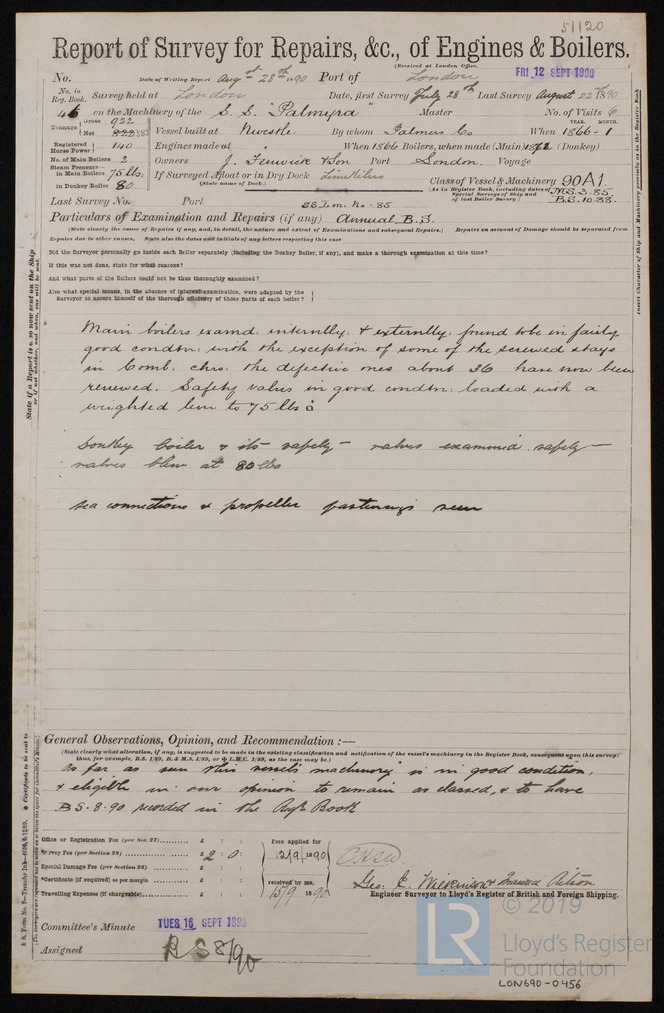 51120
Report of Survey for Repairs, &c., of Engines & Boilers.
(Received at London Office,
No. Date of Writing Report Augst 28th 1890 Port of London FRI 12 SEPT 1890
No. in Reg. Book. Survey held at London Date, first Survey July 28th Last Survey August 22nd 1890
46 on the Machinery of the S. S. "Palmyra" Master No. of Visits 6
Tonnage Gross 922 Net Vessel built at Newcstle: By whom Palmers Co When 1866-1
YEAR. MONTH.
Registered Horse Power 140 Engines made at " When 1866 Boilers, when made (Main) 1872 (Donkey)
No. of Main Boilers 2 Owners J. Fenwick & Son Port London Voyage
Steam Pressure in Main Boilers 75 lbs. If Surveyed Afloat or in Dry Dock Limekilns
(State name of Dock.)
in Donkey Boiler 80
Class of Vessel & Machinery 90A1.
(As in Register Book, including dates of Special Surveys of Ship and Machinery and of last Boiler Survey) M.S. 3.85 B.S. 10.88
Last Survey No. Port
Particulars of Examination and Repairs (if any) Annual B.S.
(State clearly the cause of Repairs if any, and, in detail, the nature and extent of Examinations and subsequent Repairs.) Repairs on account of Damage should be separated from
Repairs due to other causes, State also the dates and initials of any letters respecting this case
Did the Surveyor personally go inside each Boiler separately (including the Donkey Boiler, if any), and make a thorough examination at this time?
If this was not done, state for what reasons?
And what parts of the Boilers could not be thoroughly examined?
Also what special means, in the absence of internal examination, were adapted by the
Surveyor to assure himself of the thorough efficiency of those parts of each boiler?
Main boilers examd: internlly: & externlly: found to be in fairly
good condtn: with the exception of some of the screwed stays
in Comb. chrs: the defective ones about 36 have now been
renewed. Safety valves in good condtn: loaded with a
weighted lever to 75 lbs
Donkey boiler & its safety valves examined safety
valves blew at 80 lbs
Sea connections & propeller fastenings seen
General Observations, Opinion, and Recommendation :—
(State clearly what alteration, if any, is suggested to be made in the existing classification and notification of the vessel's machinery in the Register Book, consequent upon this survey:
thus, for example, B.S. 1/89, B. & M.S. 1/89, or L.M.C. 1/89, as the case may be.)
As far as seen this vessel's machinery is in good condition,
& eligible in our opinion to remain as classed, & to have
BS. 8.90 recorded in the Regr. Book
Office or Registration Fee (per Sec. 27) £ : :
Survey Fee (per Section 28) £ 2 : 0 :
Special Damage Fee (per Section 28) £ : :
*Certificate (if required) as per margin £ : :
Travelling Expenses (if chargeable) £ : :
Fees applied for
12/9/1890
received by me,
15/9 1890
Geo: C.
Engineer Surveyor to Lloyd's Register of British and Foreign Shipping.
Committee's Minute TUES 16 SEPT 1890
Assigned BS 8/90
State if a Report is also now sent on the Ship
Insert Character of Ship and Machinery precisely as in the Register Book
LR
© 2019
Lloyd's Register
Foundation
LON690-0456